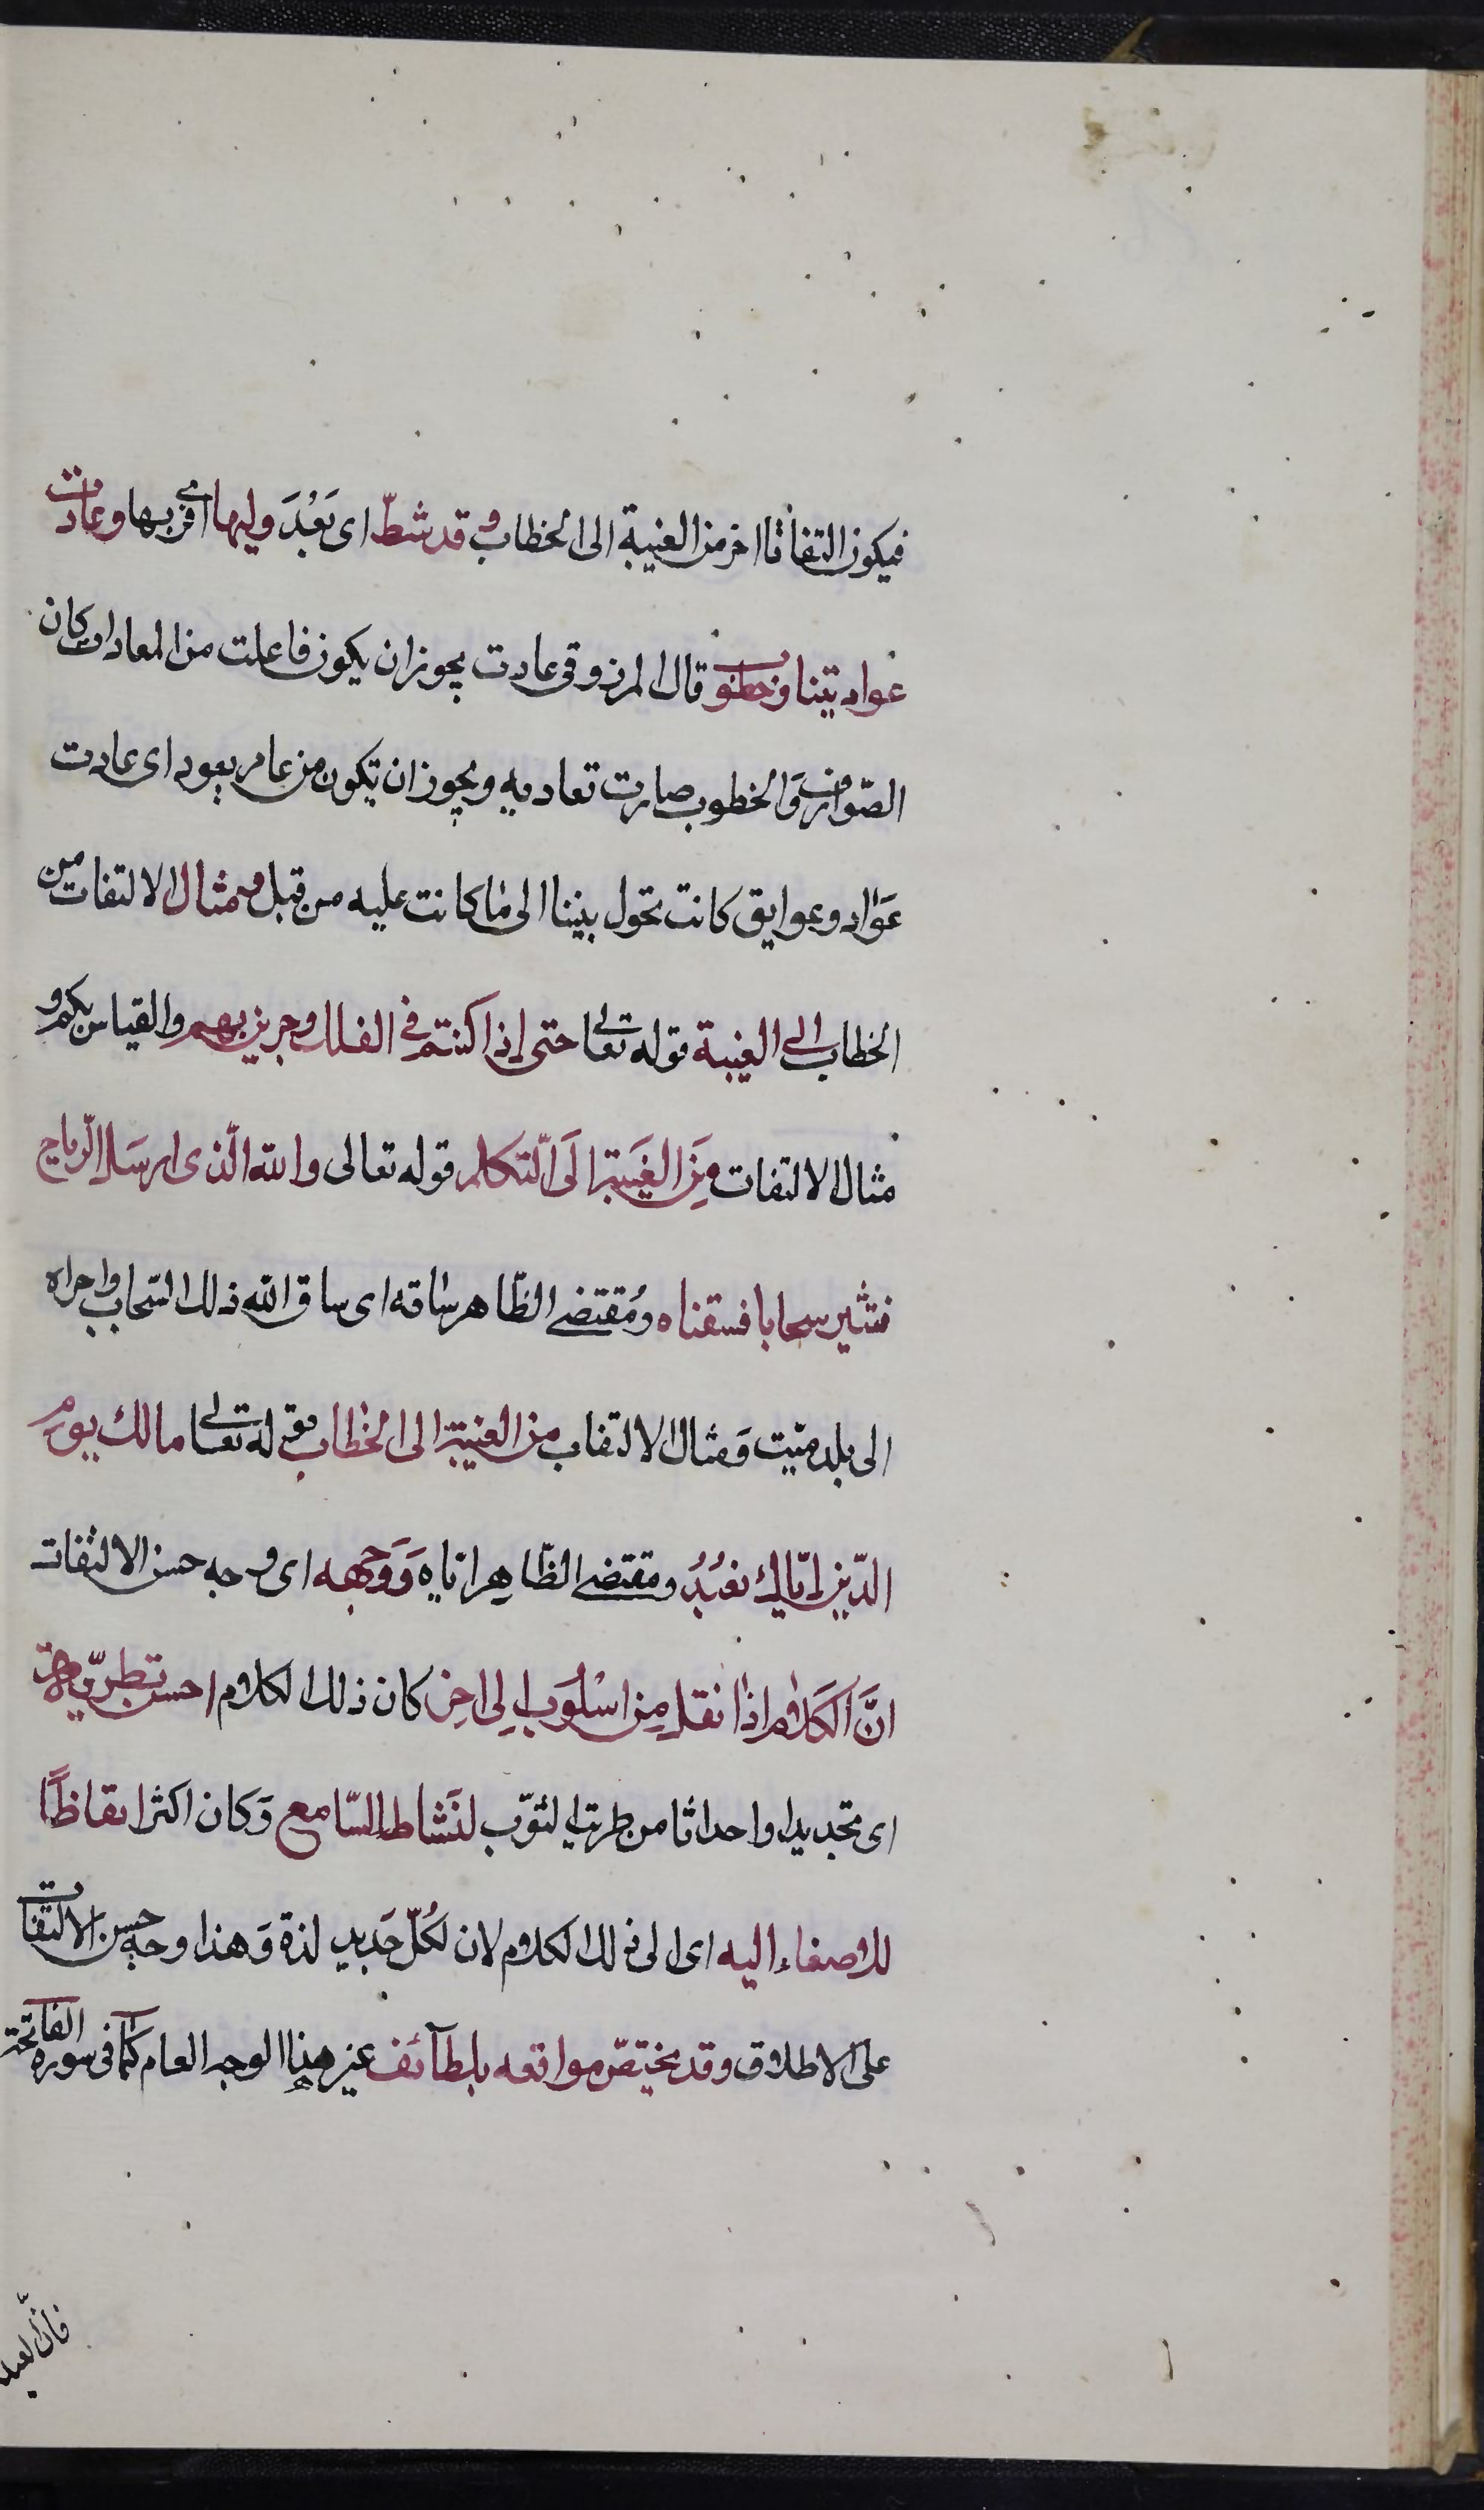 فيكون التفاتا اخر من الغيبة الى الخطاب وقد شطّ اى بَعُدَ وليها اى قربها وعادت
عواد بيننا وخطوب قال المرزوقى عادت يجوز ان يكون فاعلت من المعادات كان
الصّوارف وَالخطوب صارت تعاديه ويجوز ان تكون من عاد يعود اى عادت
عَوَاد وعوايق كانت تحول بيننا الى ما كانت عليه من قبل ومثال الالتفات من
الخطاب الى الغيبة قوله تعالى حتى اذا كنتم فى الفلك وجرين بهم والقياس بكم و
مثال الالتفات مِنَ الغَيبَة الَى التّكلم قوله تعالى والله الّذى ارسَل الرّياح
فتثير سحابا فسقناه ومُقتضى الظّاهر ساقه اى ساق الله ذلك السّحاب واجراه
الى بلد ميّت وَمثال الالتفات من الغيبة الى الخطاب قوله تعالى مالك يوم
الدّين ايّاك نعبُدُ ومقتضى الظّاهِر ايّاه وَوَجهه اى وجه حسن الالتفات
انَّ الكَلام اذا نقل مِن اسْلُوب اِلى اخر كان ذلك الكلام احسن تطرية
اى تجديدا واحداثا من طريت الثوب لنَشاط السّامع وَكان اكثر ايقاظًا
للاصغاء اليه اى الى ذلك الكلام لان لكُلّ جَديد لذة وَهذا وجه حسن الالتفات
على الاطلاق وقد يختصّ مواقعه بلطآئف غير هذا الوجه العام كما فى سورة الفاتحة
فانّ العبد